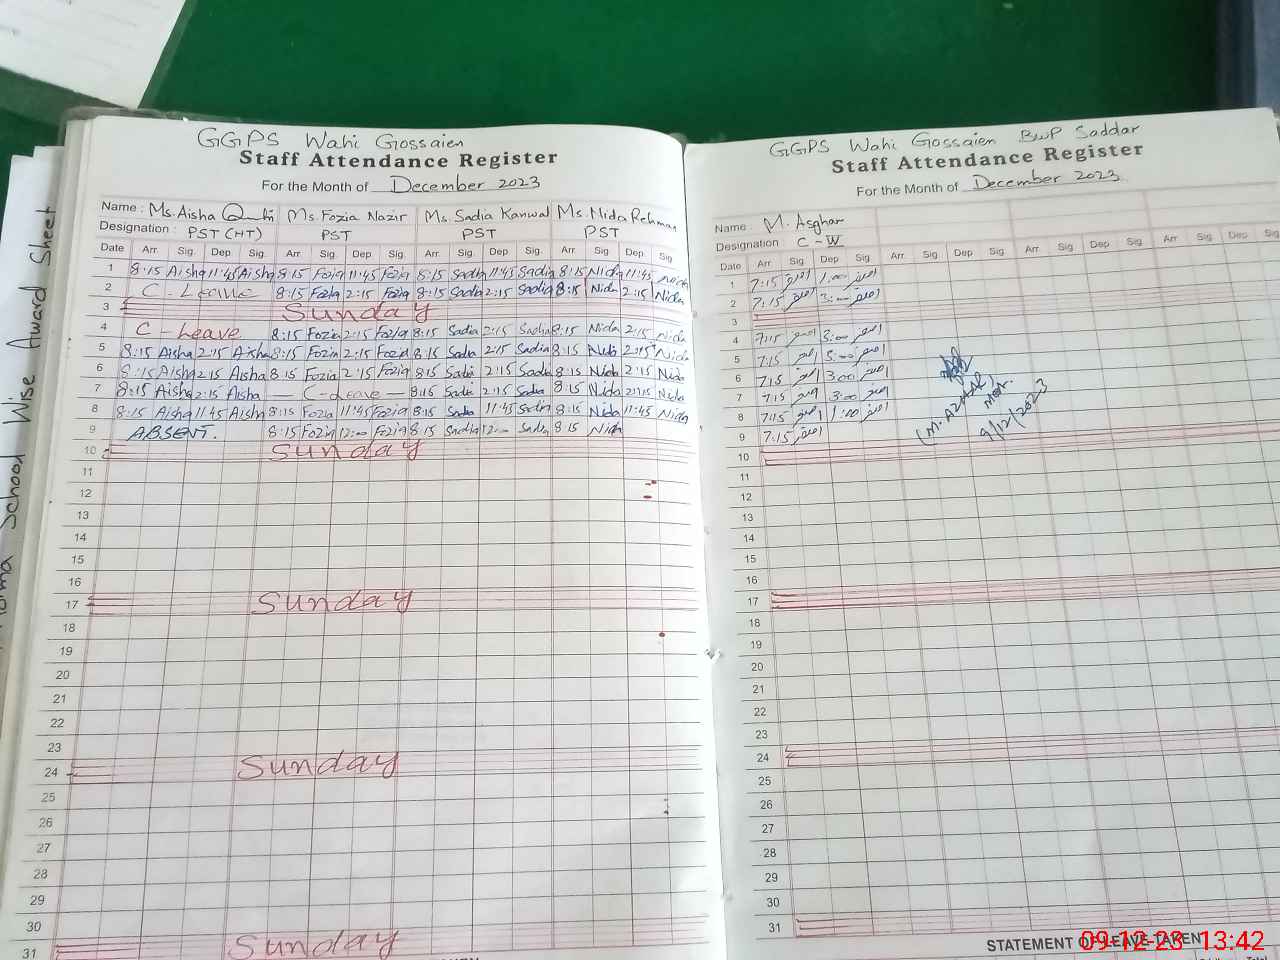 GGPS Wahi Gossaien
Staff Attendance Register
For the Month of December 2023
Name : Ms. Aisha Ms. Fozia Nazir Ms. Sadia Kanwal Ms. Nida Rehman
Designation : PST (HT) PST PST PST
Date Arr. Sig. Dep Sig. Arr. Sig. Dep Sig. Arr. Sig. Dep Sig. Arr Sig. Dep Sig
1 8:15 Aisha 11:45 Aisha 8:15 Fozia 11:45 Fozia 8:15 Sadia 11:45 Sadia 8:15 Nida 11:45 Nida
2 C - Leave 8:15 Fozia 2:15 Fozia 8:15 Sadia 2:15 Sadia 8:15 Nida 2:15 Nida
3 Sunday
4 C - Leave 8:15 Fozia 2:15 Fozia 8:15 Sadia 2:15 Sadia 8:15 Nida 2:15 Nida
5 8:15 Aisha 2:15 Aisha 8:15 Fozia 2:15 Fozia 8:15 Sadia 2:15 Sadia 8:15 Nida 2:15 Nida
6 8:15 Aisha 2:15 Aisha 8:15 Fozia 2:15 Fozia 8:15 Sadia 2:15 Sadia 8:15 Nida 2:15 Nida
7 8:15 Aisha 2:15 Aisha — C-Leave — 8:15 Sadia 2:15 Sadia 8:15 Nida 2:15 Nida
8 8:15 Aisha 11:45 Aisha 8:15 Fozia 11:45 Fozia 8:15 Sadia 11:45 Sadia 8:15 Nida 11:45 Nida
9 ABSENT. 8:15 Fozia 12:00 Fozia 8:15 Sadia 12:00 Sadia 8:15 Nida
10 Sunday
11
12
13
14
15
16
17 Sunday
18
19
20
21
22
23
24 Sunday
25
26
27
28
29
30
31 Sunday
GGPS Wahi Gossaien BWP Saddar
Staff Attendance Register
For the Month of December 2023
Name : M. Asghar
Designation : C - W
Date Arr Sig Dep Sig Arr. Sig Dep Sig. Arr. Sig. Dep Sig. Arr Sig. Dep Sig
1 7:15 اصغر 1:00 اصغر
2 7:15 اصغر 3:00 اصغر
3
4 7:15 اصغر 3:00 اصغر
5 7:15 اصغر 3:00 اصغر
6 7:15 اصغر 3:00 اصغر
7 7:15 اصغر 3:00 اصغر
8 7:15 اصغر 1:00 اصغر
9 7:15 اصغر
10
11
12
13
14
15
16
17
18
19
20
21
22
23
24
25
26
27
28
29
30
31
(M. AZHAR)
9/12/2023
STATEMENT OF LEAVE TAKEN
School Wise Award Sheet
09-12-23 13:42